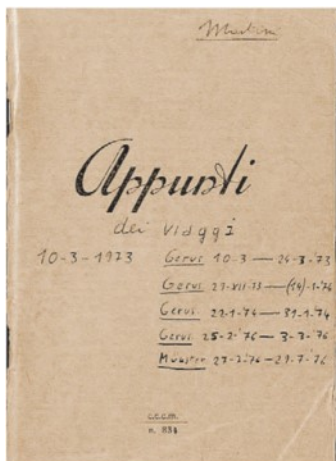 Martini
Appunti
dei viaggi
10-3-1973 Gerus. 10-3 — 24-3-'73
Gerus. 27-XII-73 — (14)-1-'74
Gerus. 27-1-'74 — 31-1-'74
Gerus. 25-2-'76 — 3-3-'76
Münster 27-7-'76 — 29-7-'76
c.c.c.m.
n. 834